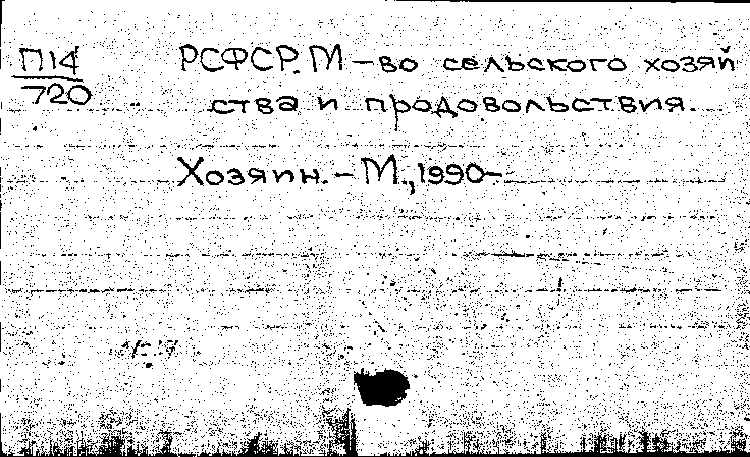 П14
720
РСФСР. М-во сельского хозяй
ства и продовольствия.
Хозяин. - М., 1990-